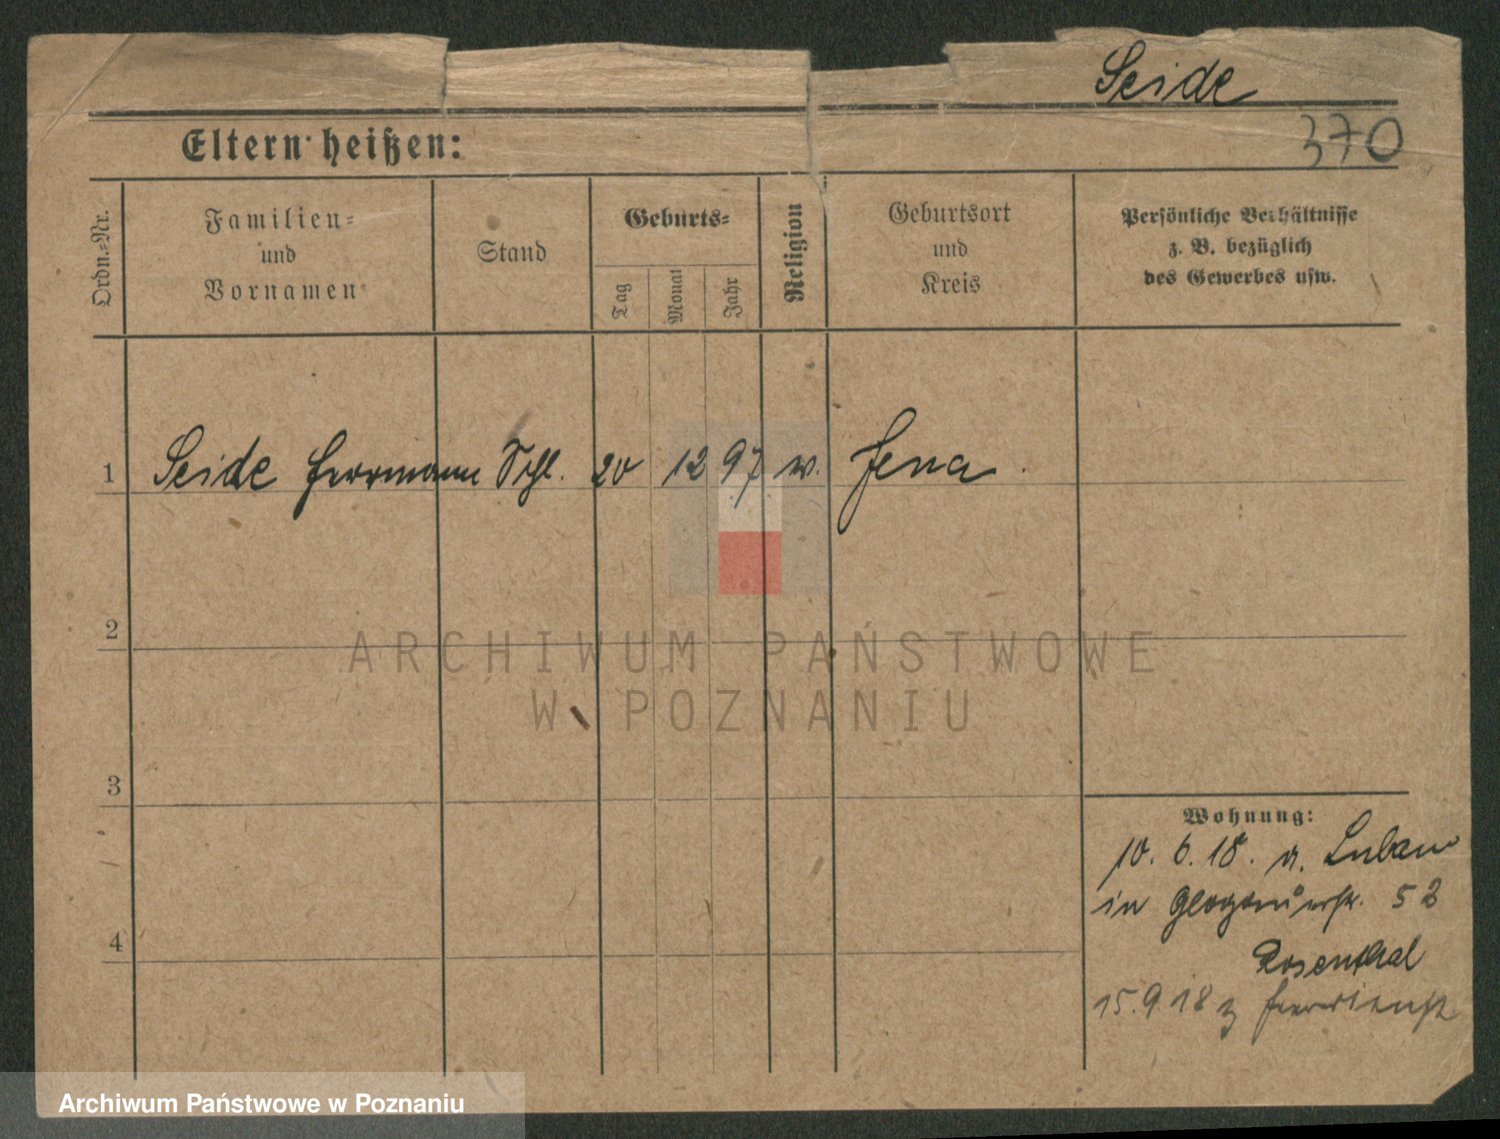 Seide
370
Eltern heißen:
Ordn.-Nr.
Familien-
und
Vornamen
Stand
Geburts-
Tag
Monat
Jahr
Religion
Geburtsort
und
Kreis
Persönliche Verhältnisse
z. B. bezüglich
des Gewerbes usw.
1 Seide Herrmann Schl. 20 12 97 Jena
2
3
4
Wohnung:
10. 6. 18. Luban
in Glogauerstr. 52
Rosenthal
15. 9. 18 z Heeresdienst
ARCHIWUM PAŃSTWOWE
W POZNANIU
Archiwum Państwowe w Poznaniu